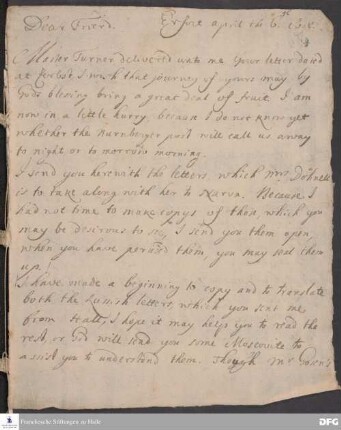 Dear Friend. Erfurt april the 6.
Master Turner delivered unto me your letter dated
at I wish that journey of yours may by
Gods blessing bring a great deal of fruit. I am
now in a little hurry because I do not know yet
whether the Nurnberger post will call us away
to night or to morrow morning.
I send you herewith the letters, which Mrs
is to take along with her to Narva. Because I
had not time to make copys of them, which you
may be desirous to see, I send you them open,
when you have perused them, you may seal them
up.
I have made a beginning to copy and to translate
both the Russish letters, which you sent me
from Hall; I hope it may help you to read the
rest, or God will send you some Moscovite to
assist you to understand them. Though Mr
Franckesche Stiftungen zu Halle
DFG